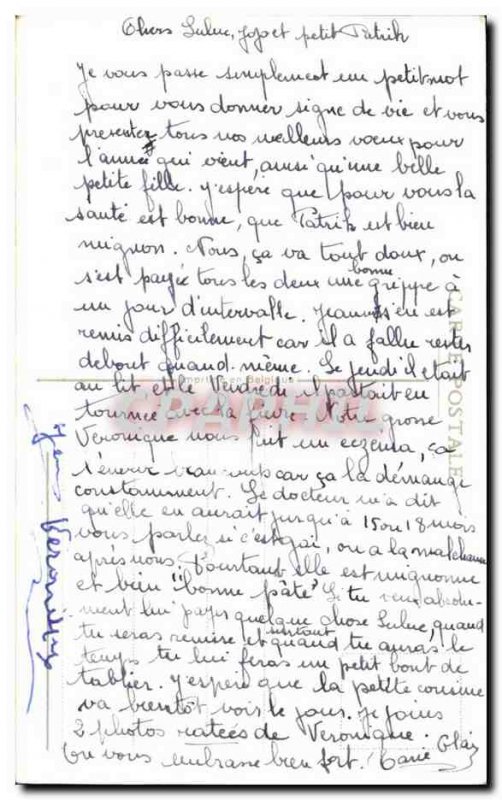 Chers Lulue, Jojo et petit Patrik
Je vous passe simplement un petit mot
pour vous donner signe de vie et vous
presenter tous nos meilleurs voeux pour
l'année qui vient, ainsi qu'une belle
petite fille. J'espère que pour vous la
santé est bonne, que Patrik est bien
mignon. Nous, ça va tout doux, on
s'est payée tous les deux une bonne grippe à
un jour d'intervalle. s'en est
remis difficilement car il a fallu rester
debout quand-même. Le jeudi il était
au lit et le Vendredi il partait en
tournée avec la fièvre. Notre grosse
Veronique nous fait un eczema, ça
l'énerve car ça la démange
constamment. Le docteur m'a dit
qu'elle en aurait jusqu'à 15 ou 18 mois
vous parlez si c'est gai, on a la malchance
après nous. Pourtant elle est mignonne
et bien "bonne pâte". Si tu veux absolu-
ment lui payer quelque chose Lulue, quand
tu seras remise et surtout quand tu auras le
temps tu lui feras un petit bout de
tablier. J'espère que la petite cousine
va bientôt voir le jour. Je joins
2 photos ratées de Veronique.
On vous embrasse bien fort.
Veronique
CARTE POSTALE
Belgique
CPAPHIL